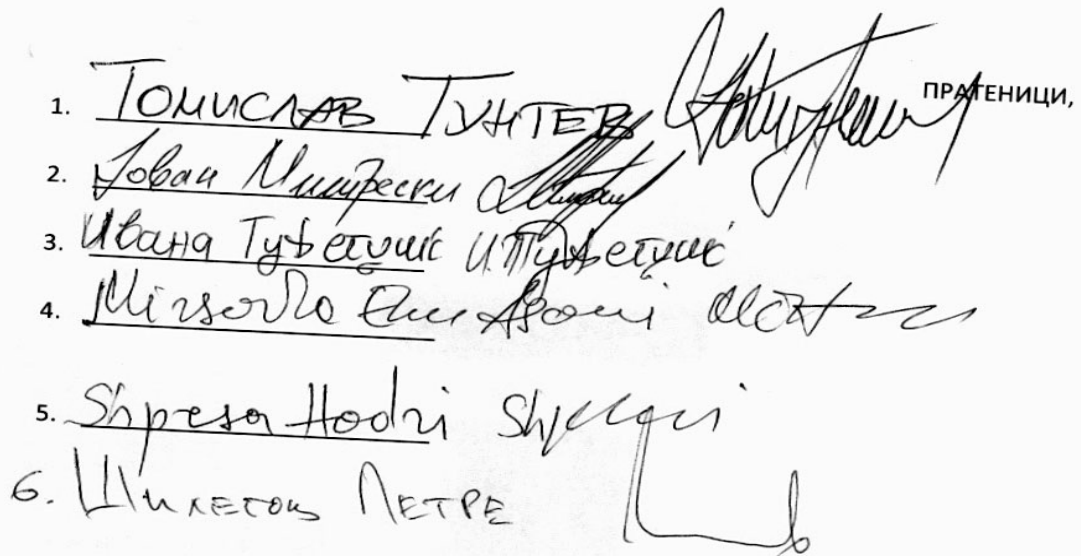 ПРАТЕНИЦИ,
1. Томислав Тунтев
2. Јован Митрески
3. Ивана Туфегџиќ И Туфегџиќ
4. Mirsada Emini Asani
5. Shpresa Hadri
6. Шилегов Петре